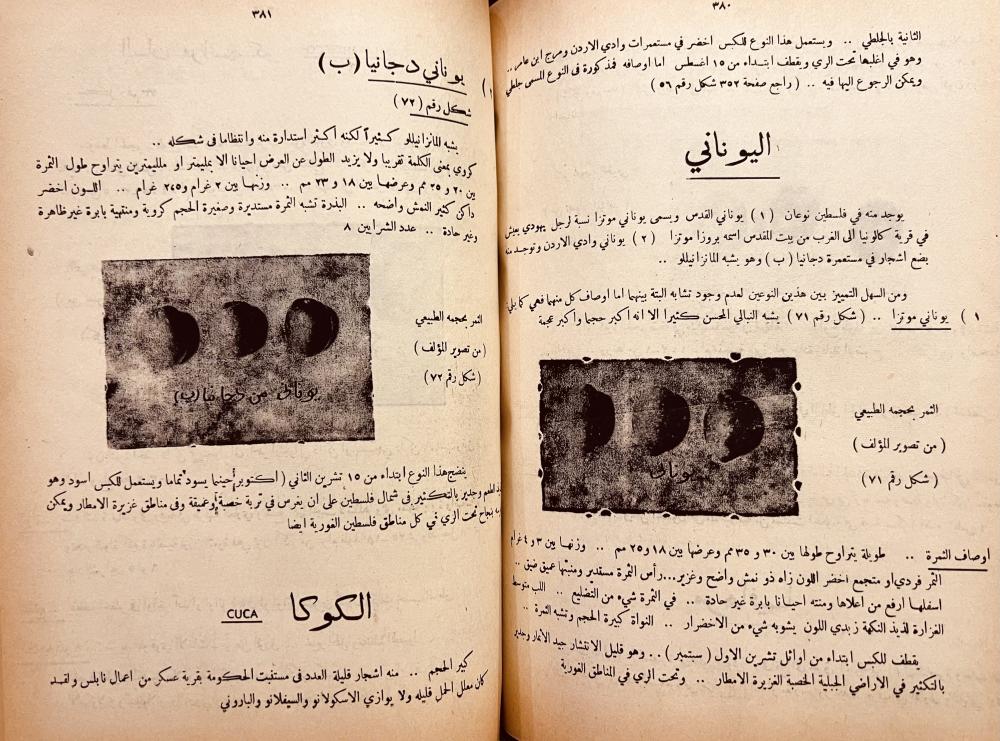 ٣٨٠
الثانية بالجلطي .. ويستعمل هذا النوع للكبس اخضر في مستعمرات وادي الاردن ومرج ابن عامر ..
وهو في اغلبها تحت الري ويقطف ابتداء من ١٥ اغسطس اما اوصافه فمذكورة في النوع المسمى جلطي
ويمكن الرجوع اليها فيه .. ( راجع صفحة ٣٥٢ شكل رقم ٥٦ )
اليوناني
يوجد منه في فلسطين نوعان ( ١ ) يوناني القدس ويسمى يوناني موتزا نسبة لرجل يهودي يعيش
في قرية كالونيا الى الغرب من بيت المقدس اسمه بروزا موتزا ( ٢ ) يوناني وادي الاردن وتوجد منه
بضع اشجار في مستعمرة دجانيا ( ب ) وهو يشبه المانزانيللو ..
ومن السهل التمييز بين هذين النوعين لعدم وجود تشابه البتة بينهما اما اوصاف كل منهما فهي كما يلي
١ ) يوناني موتزا .. ( شكل رقم ٧١ ) يشبه النبالي المحسن كثيرا الا انه اكبر حجما واكبر عجمة
الثمر بحجمه الطبيعي
( من تصوير المؤلف )
( شكل رقم ٧١ )
يوناني
اوصاف الثمرة .. طويلة يتراوح طولها بين ٣٠ و ٣٥ مم وعرضها بين ١٨ و٢٥ مم .. وزنها بين ٣ و ٤ غرام
الثمر فردي او متجمع اخضر اللون زاه ذو نمش واضح وغزير... رأس الثمرة مستدير ومنبتها عميق ضيق ..
اسفلها ارفع من اعلاها ومنته احيانا بابرة غير حادة .. في الثمرة شيء من التضليع .. اللب متوسط
الغزارة لذيذ النكهة زبدي اللون يشوبه شيء من الاخضرار .. النواة كبيرة الحجم وتشبه الثمرة ..
يقطف للكبس ابتداء من اوائل تشرين الاول ( سبتمبر ) .. وهو قليل الانتشار جيد الاثمار وجدير
بالتكثير في الاراضي الجبلية الخصبة الغزيرة الامطار .. وتحت الري في المناطق الغورية
٣٨١
يوناني دجانيا (ب)
شكل رقم ( ٧٢ )
يشبه المانزانيللو كثيراً لكنه اكثر استدارة منه وانتظاما في شكله ..
كروي بمعنى الكلمة تقريبا ولا يزيد الطول عن العرض احيانا الا بمليمتر او ملليمترين يتراوح طول الثمرة
بين ٢٠ و ٢٥ مم وعرضها بين ١٨ و ٢٣ مم .. وزنها بين ٢ غرام و٢٬٥ غرام .. اللون اخضر
داكن كثير النمش واضحه .. البذرة تشبه الثمرة مستديرة وصغيرة الحجم كروية ومنتهية بابرة غير ظاهرة
وغير حادة .. عدد الشرايين ٨
الثمر بحجمه الطبيعي
( من تصوير المؤلف )
( شكل رقم ٧٢ )
يوناني من دجانيا (ب)
ينضج هذا النوع ابتداء من ١٥ تشرين الثاني ( اكتوبر ) حينما يسود تماما ويستعمل للكبس اسود وهو
الطعم وجدير بالتكثير في شمال فلسطين على ان يغرس في تربة خصبة عميقة وفي مناطق غزيرة الامطار ويمكن
بنجاح تحت الري في كل مناطق فلسطين الغورية ايضا
الكوكا CUCA
كبير الحجم .. منه اشجار قليلة العدد في مستنبت الحكومة بقرية عسكر من اعمال نابلس ولقد
كان معلل الحمل قليله ولا يوازي الاسكولانو والسيفلانو والباروني